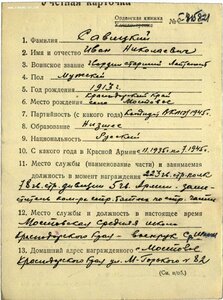 Учетная карточка
Орденская книжка
№ С
1. Фамилия Савицкий
2. Имя и отчество Иван Николаевич
3. Воинское звание Гвардии старший лейтенант
4. Пол Мужской
5. Год рождения 1913 г.
6. Место рождения Краснодарский край село Мостовое
7. Партийность (с какого года) Кандидат ВКП(б) 1945.
8. Образование Низшее
9. Национальность Русский
10. С какого года в Красной Армии с 11.1935 по 7.1945.
11. Место службы (наименование части) и занимаемая
должность в момент награждения 223 гв. стр. полк
78 гв. стр. дивизии 5 гв. Армии
12. Место службы и должность в настоящее время
Мостовская средняя
Краснодарского края – военрук
13. Домашний адрес награжденного с. Мостовое
Краснодарского края ул. М-Горького № 82
(См. н/об.)